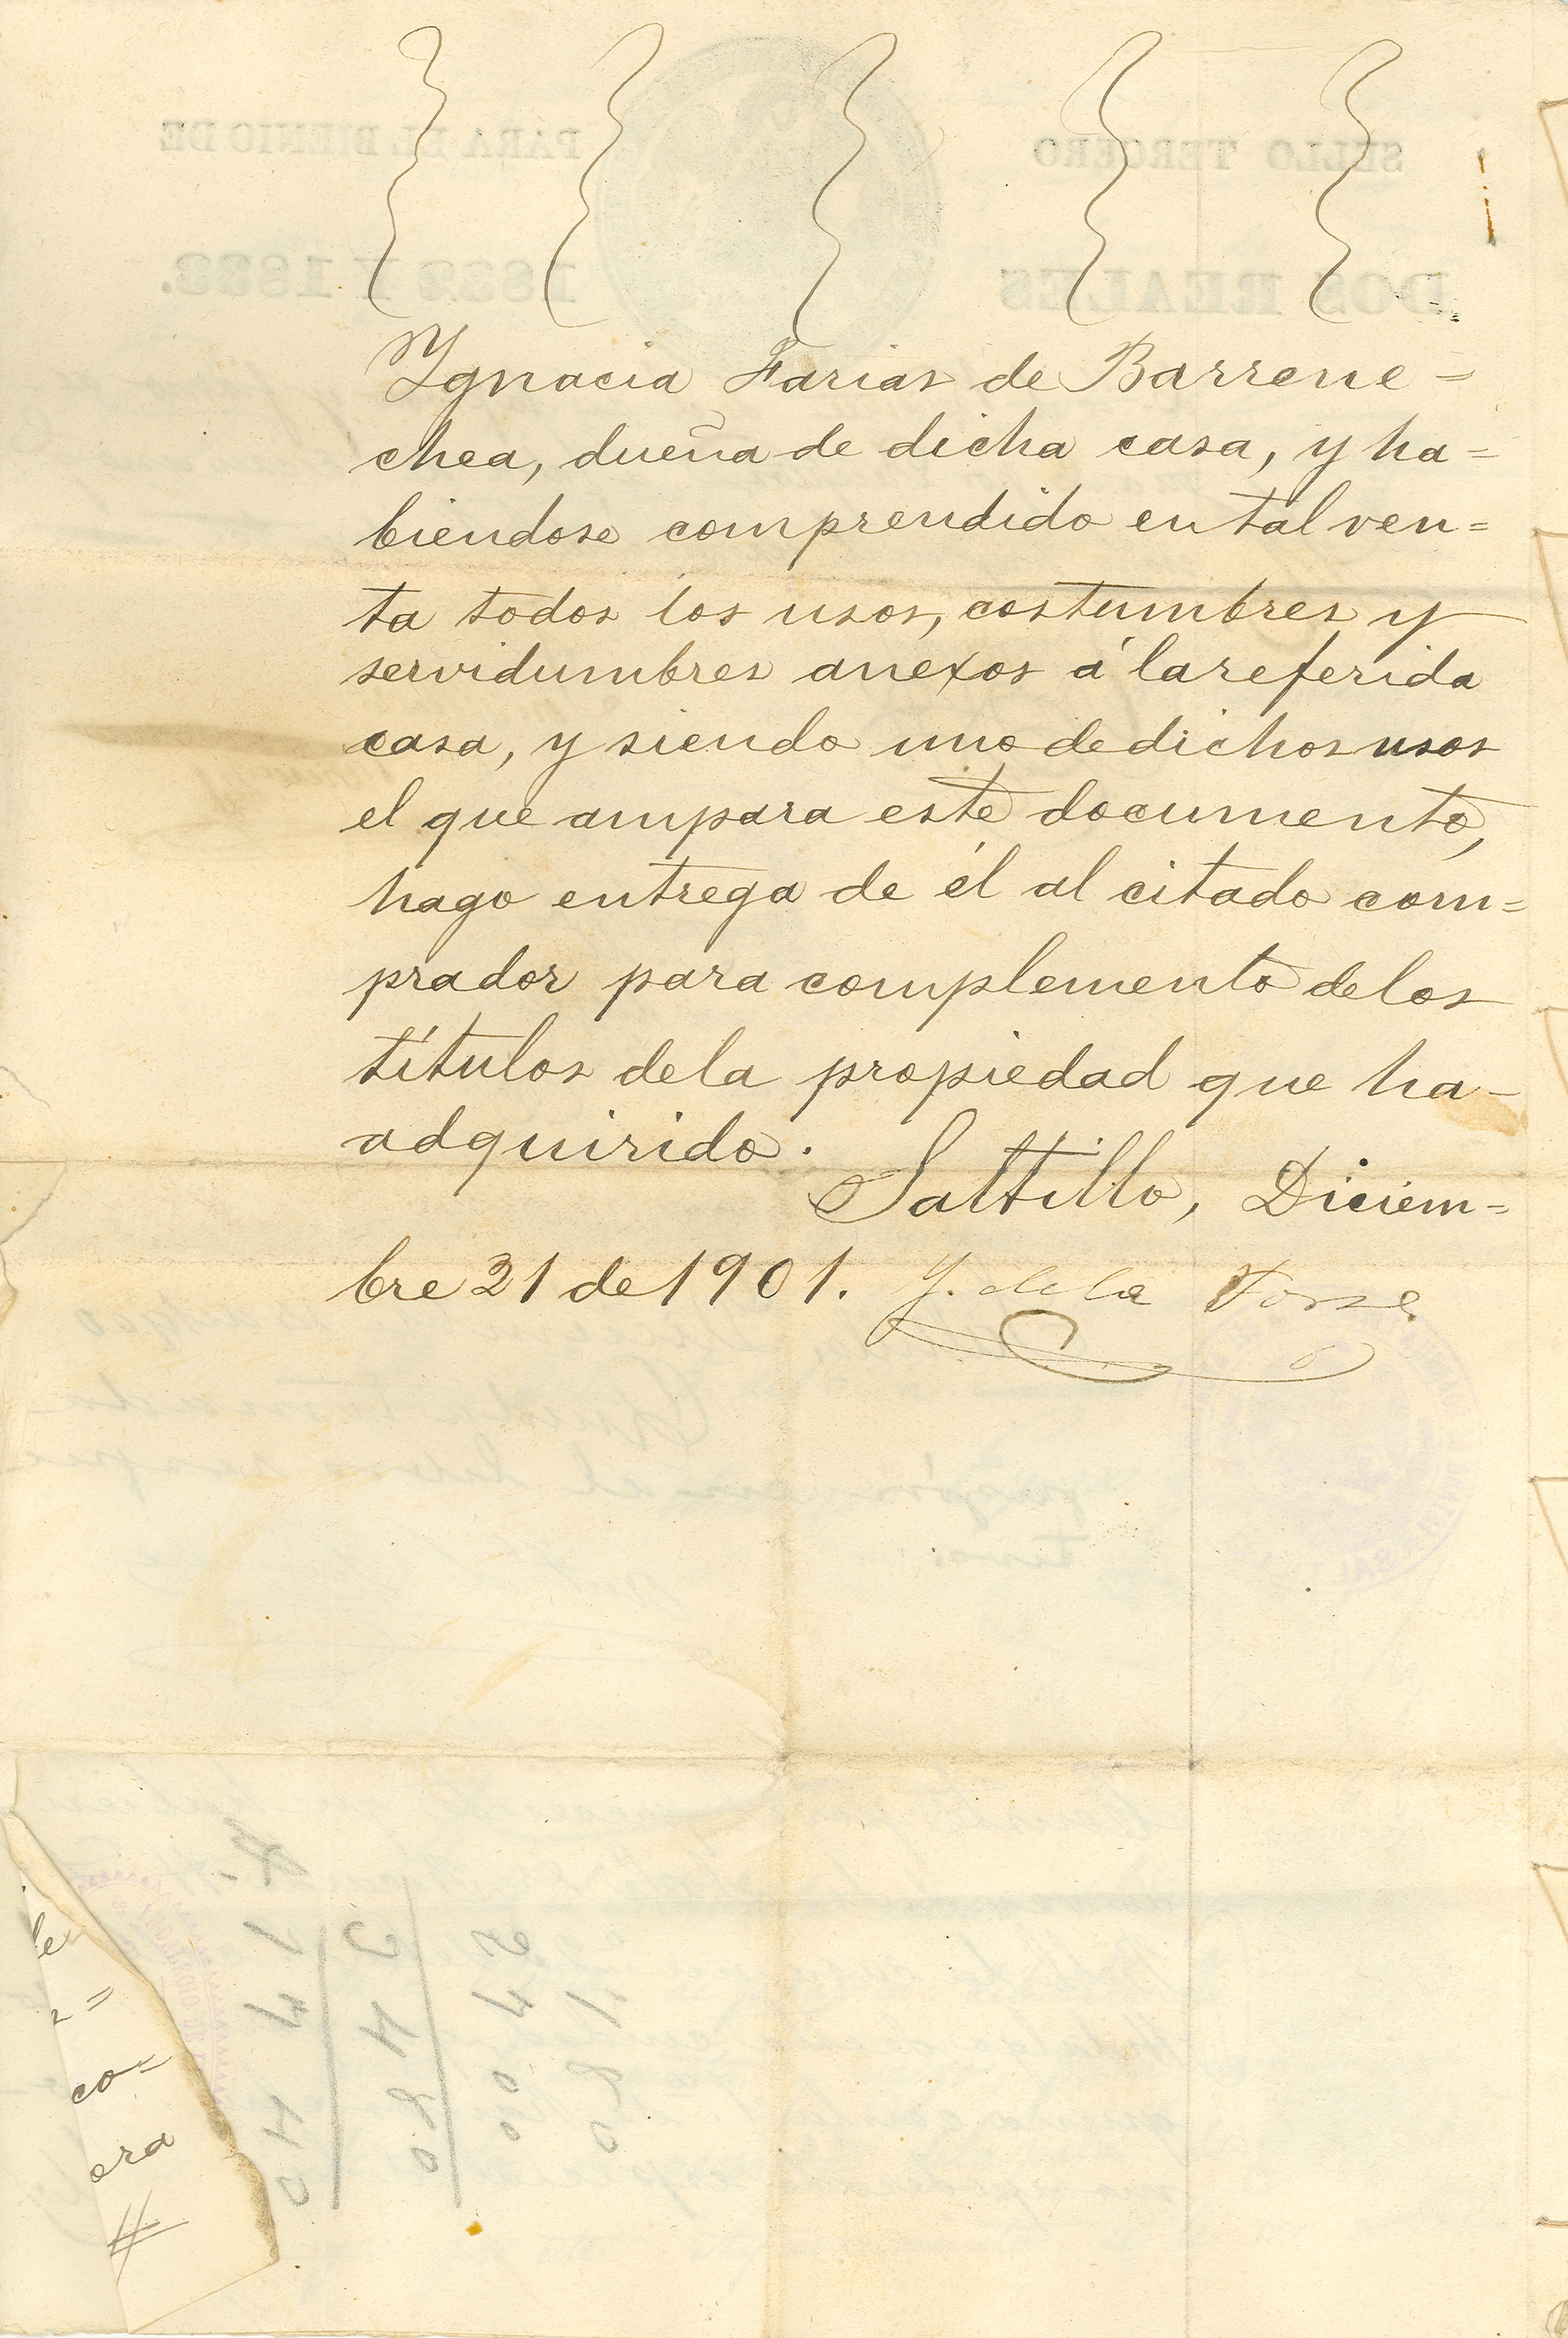 Ygnacia Farias de Barrene=
chea, dueña de dicha casa, y ha=
biendose comprendido en tal ven=
ta todos los usos, costumbres y
servidumbres anexos á la referida
casa, y siendo uno de dichos usos
el que ampara este documento,
hago entrega de él al citado com=
prador para complemento de los
títulos de la propiedad que ha-
adquirido.
Saltillo, Diciem=
bre 21 de 1901. Y. de la
SELLO TERCERO
PARA EL BIENIO DE
DOS REALES
co=
era